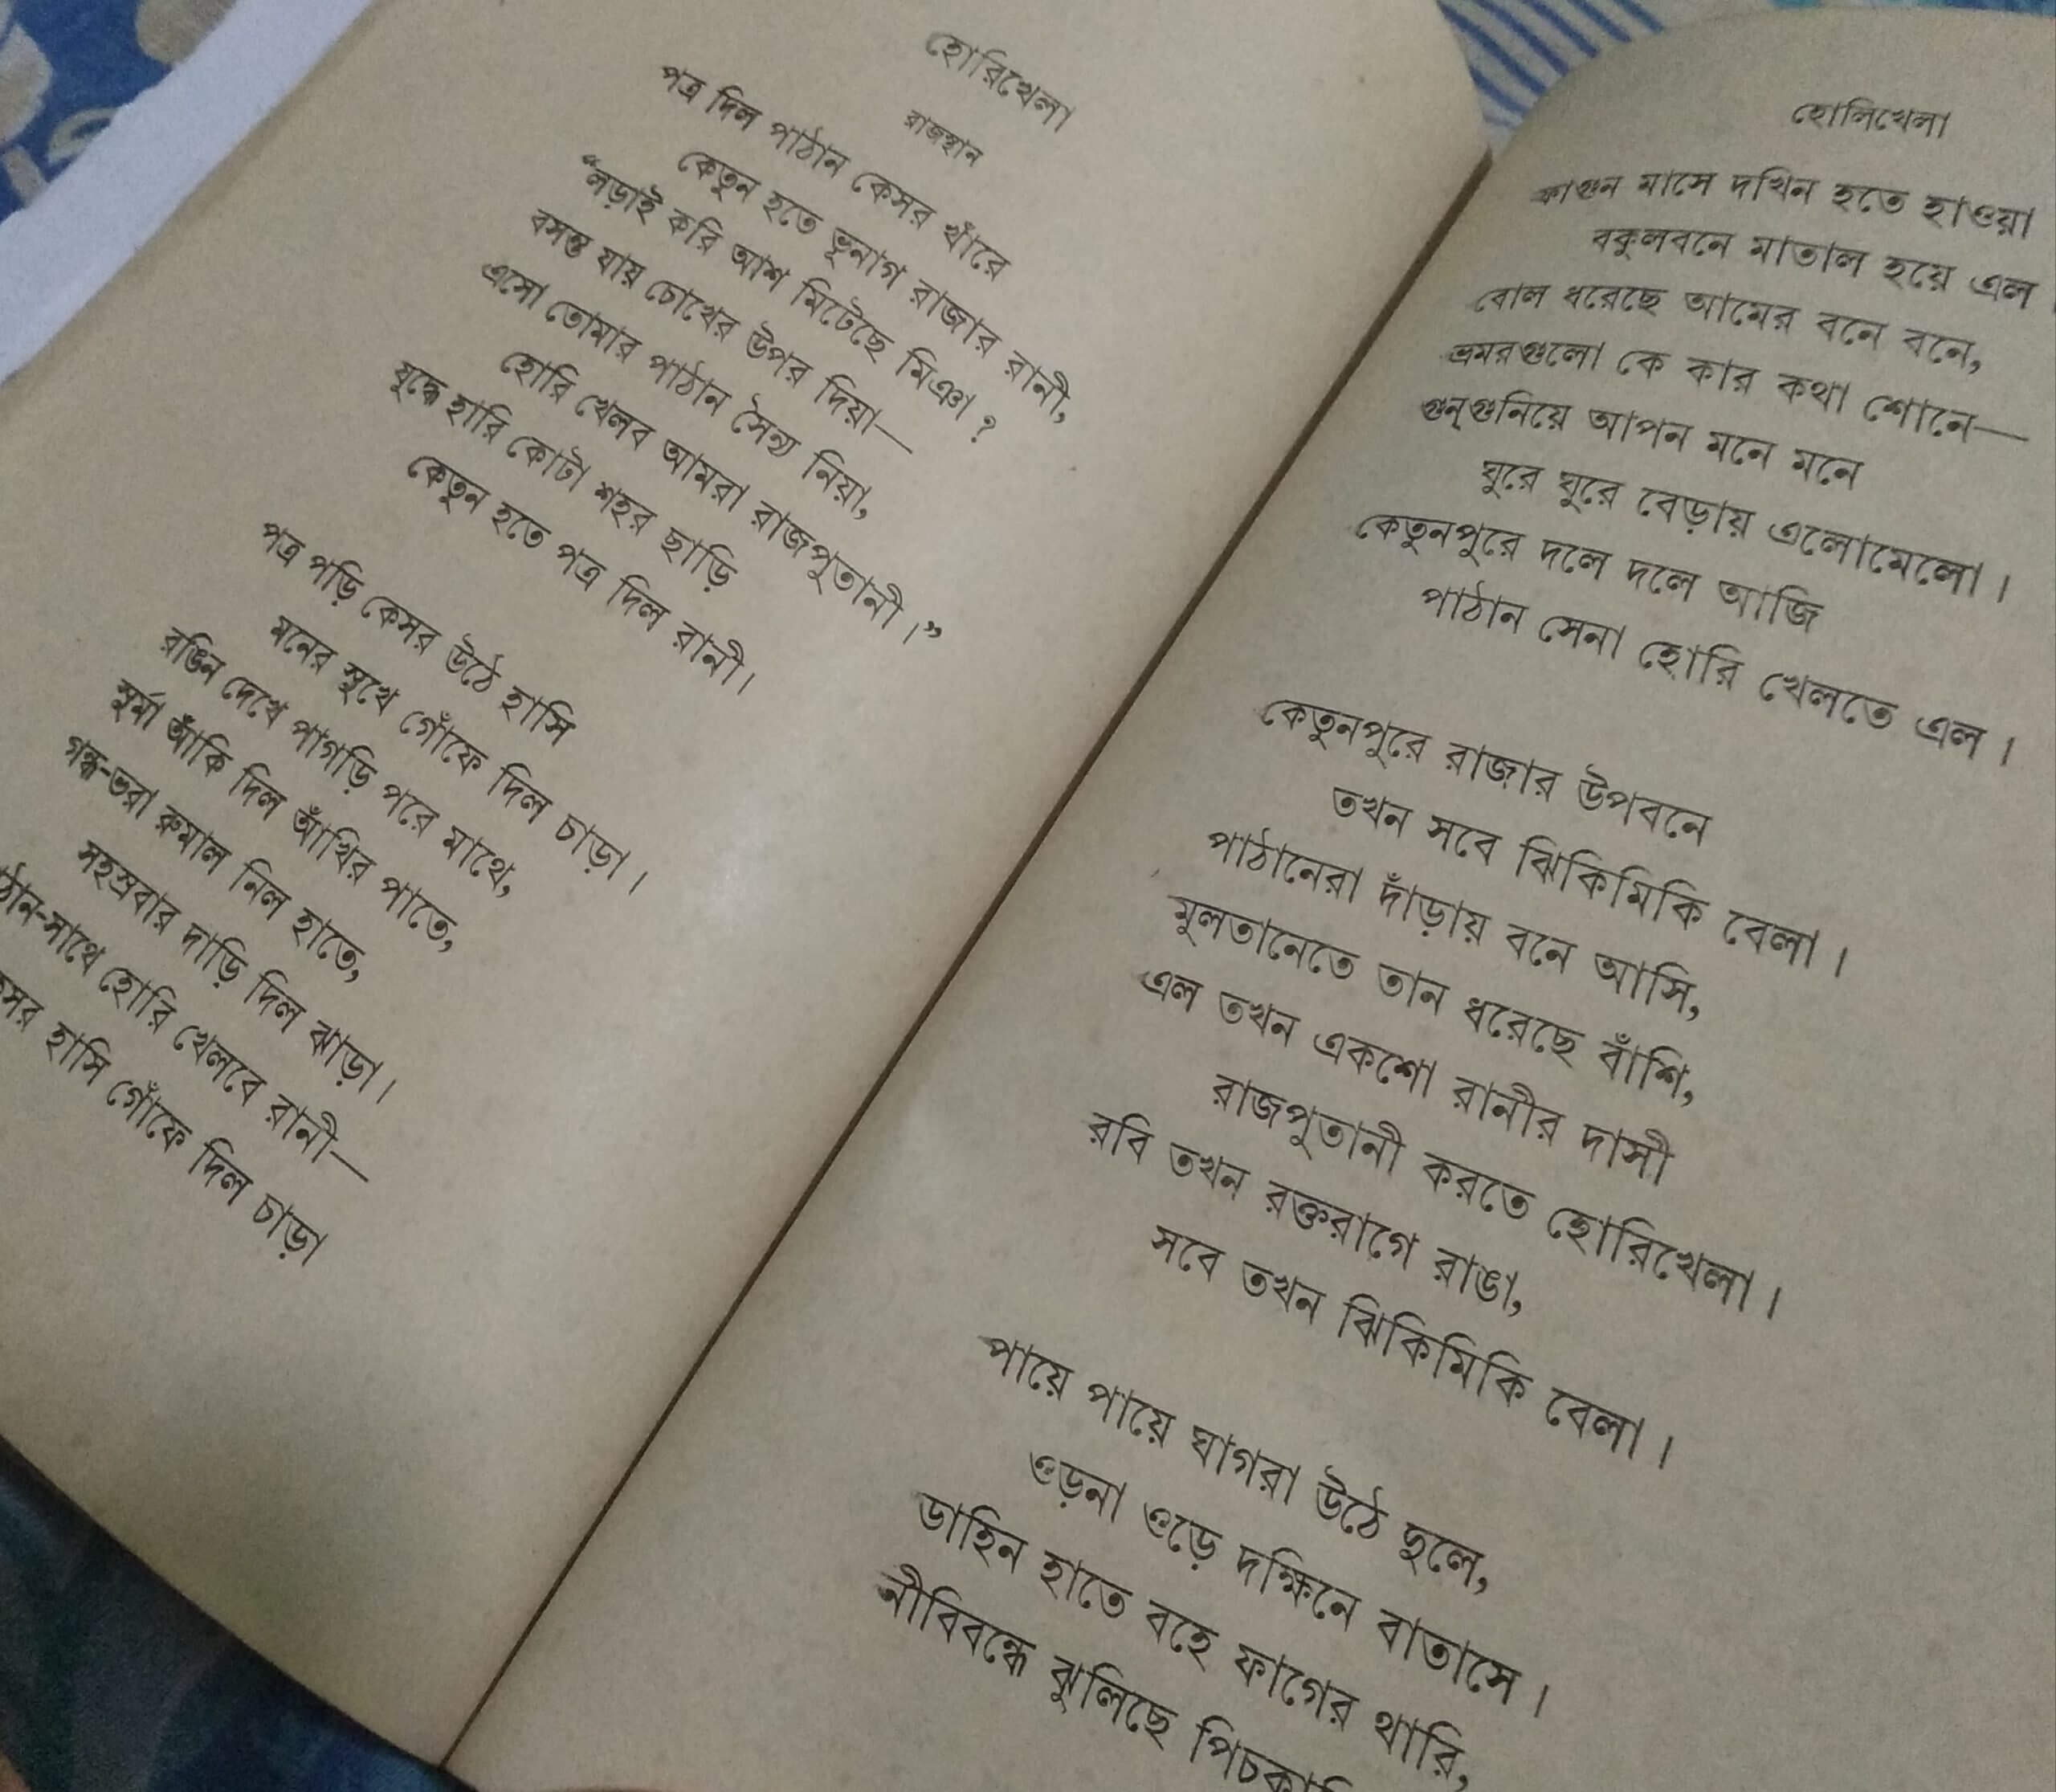 হোরিখেলা
রাজস্থান
পত্র দিল পাঠান কেসর খাঁরে
কেতুন হতে ভূনাগ রাজার রানী,
“লড়াই করি আশ মিটেছে মিঞা ?
বসন্ত যায় চোখের উপর দিয়া—
এসো তোমার পাঠান সৈন্য নিয়া,
হোরি খেলব আমরা রাজপুতানী।”
যুদ্ধে হারি কোটা শহর ছাড়ি
কেতুন হতে পত্র দিল রানী।
পত্র পড়ি কেসর উঠে হাসি
মনের সুখে গোঁফে দিল চাড়া।
রঙিন দেখে পাগড়ি পরে মাথে,
সুর্মা আঁকি দিল আঁখির পাতে,
গন্ধ-ভরা রুমাল নিল হাতে,
সহস্রবার দাড়ি দিল ঝাড়া।
ঠান-সাথে হোরি খেলবে রানী—
সর হাসি গোঁফে দিল চাড়া
হোলিখেলা
ফাগুন মাসে দখিন হতে হাওয়া
বকুলবনে মাতাল হয়ে এল।
বোল ধরেছে আমের বনে বনে,
ভ্রমরগুলো কে কার কথা শোনে—
গুন্‌গুনিয়ে আপন মনে মনে
ঘুরে ঘুরে বেড়ায় এলোমেলো।
কেতুনপুরে দলে দলে আজি
পাঠান সেনা হোরি খেলতে এল।
কেতুনপুরে রাজার উপবনে
তখন সবে ঝিকিমিকি বেলা।
পাঠানেরা দাঁড়ায় বনে আসি,
মুলতানেতে তান ধরেছে বাঁশি,
এল তখন একশো রানীর দাসী
রাজপুতানী করতে হোরিখেলা।
রবি তখন রক্তরাগে রাঙা,
সবে তখন ঝিকিমিকি বেলা।
পায়ে পায়ে ঘাগরা উঠে দুলে,
ওড়না ওড়ে দক্ষিনে বাতাসে।
ডাহিন হাতে বহে ফাগের থারি,
নীবিবন্ধে ঝুলিছে